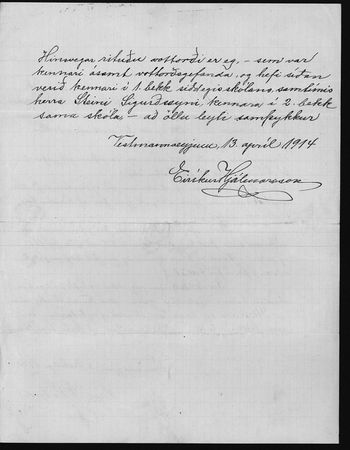 Hinsvegar rituðu vottorði er eg, - sem var
kennari ásamt vottorðsgefanda, og hefi síðan
verið kennari í 1. bekk síðdegisskólans, samtímis
herra Steini Sigurðssyni, kennara í 2. bekk
sama skóla - að öllu leyti samþykkur
Vestmannaeyjum, 13. apríl 1914
Eiríkur Hjálmarsson